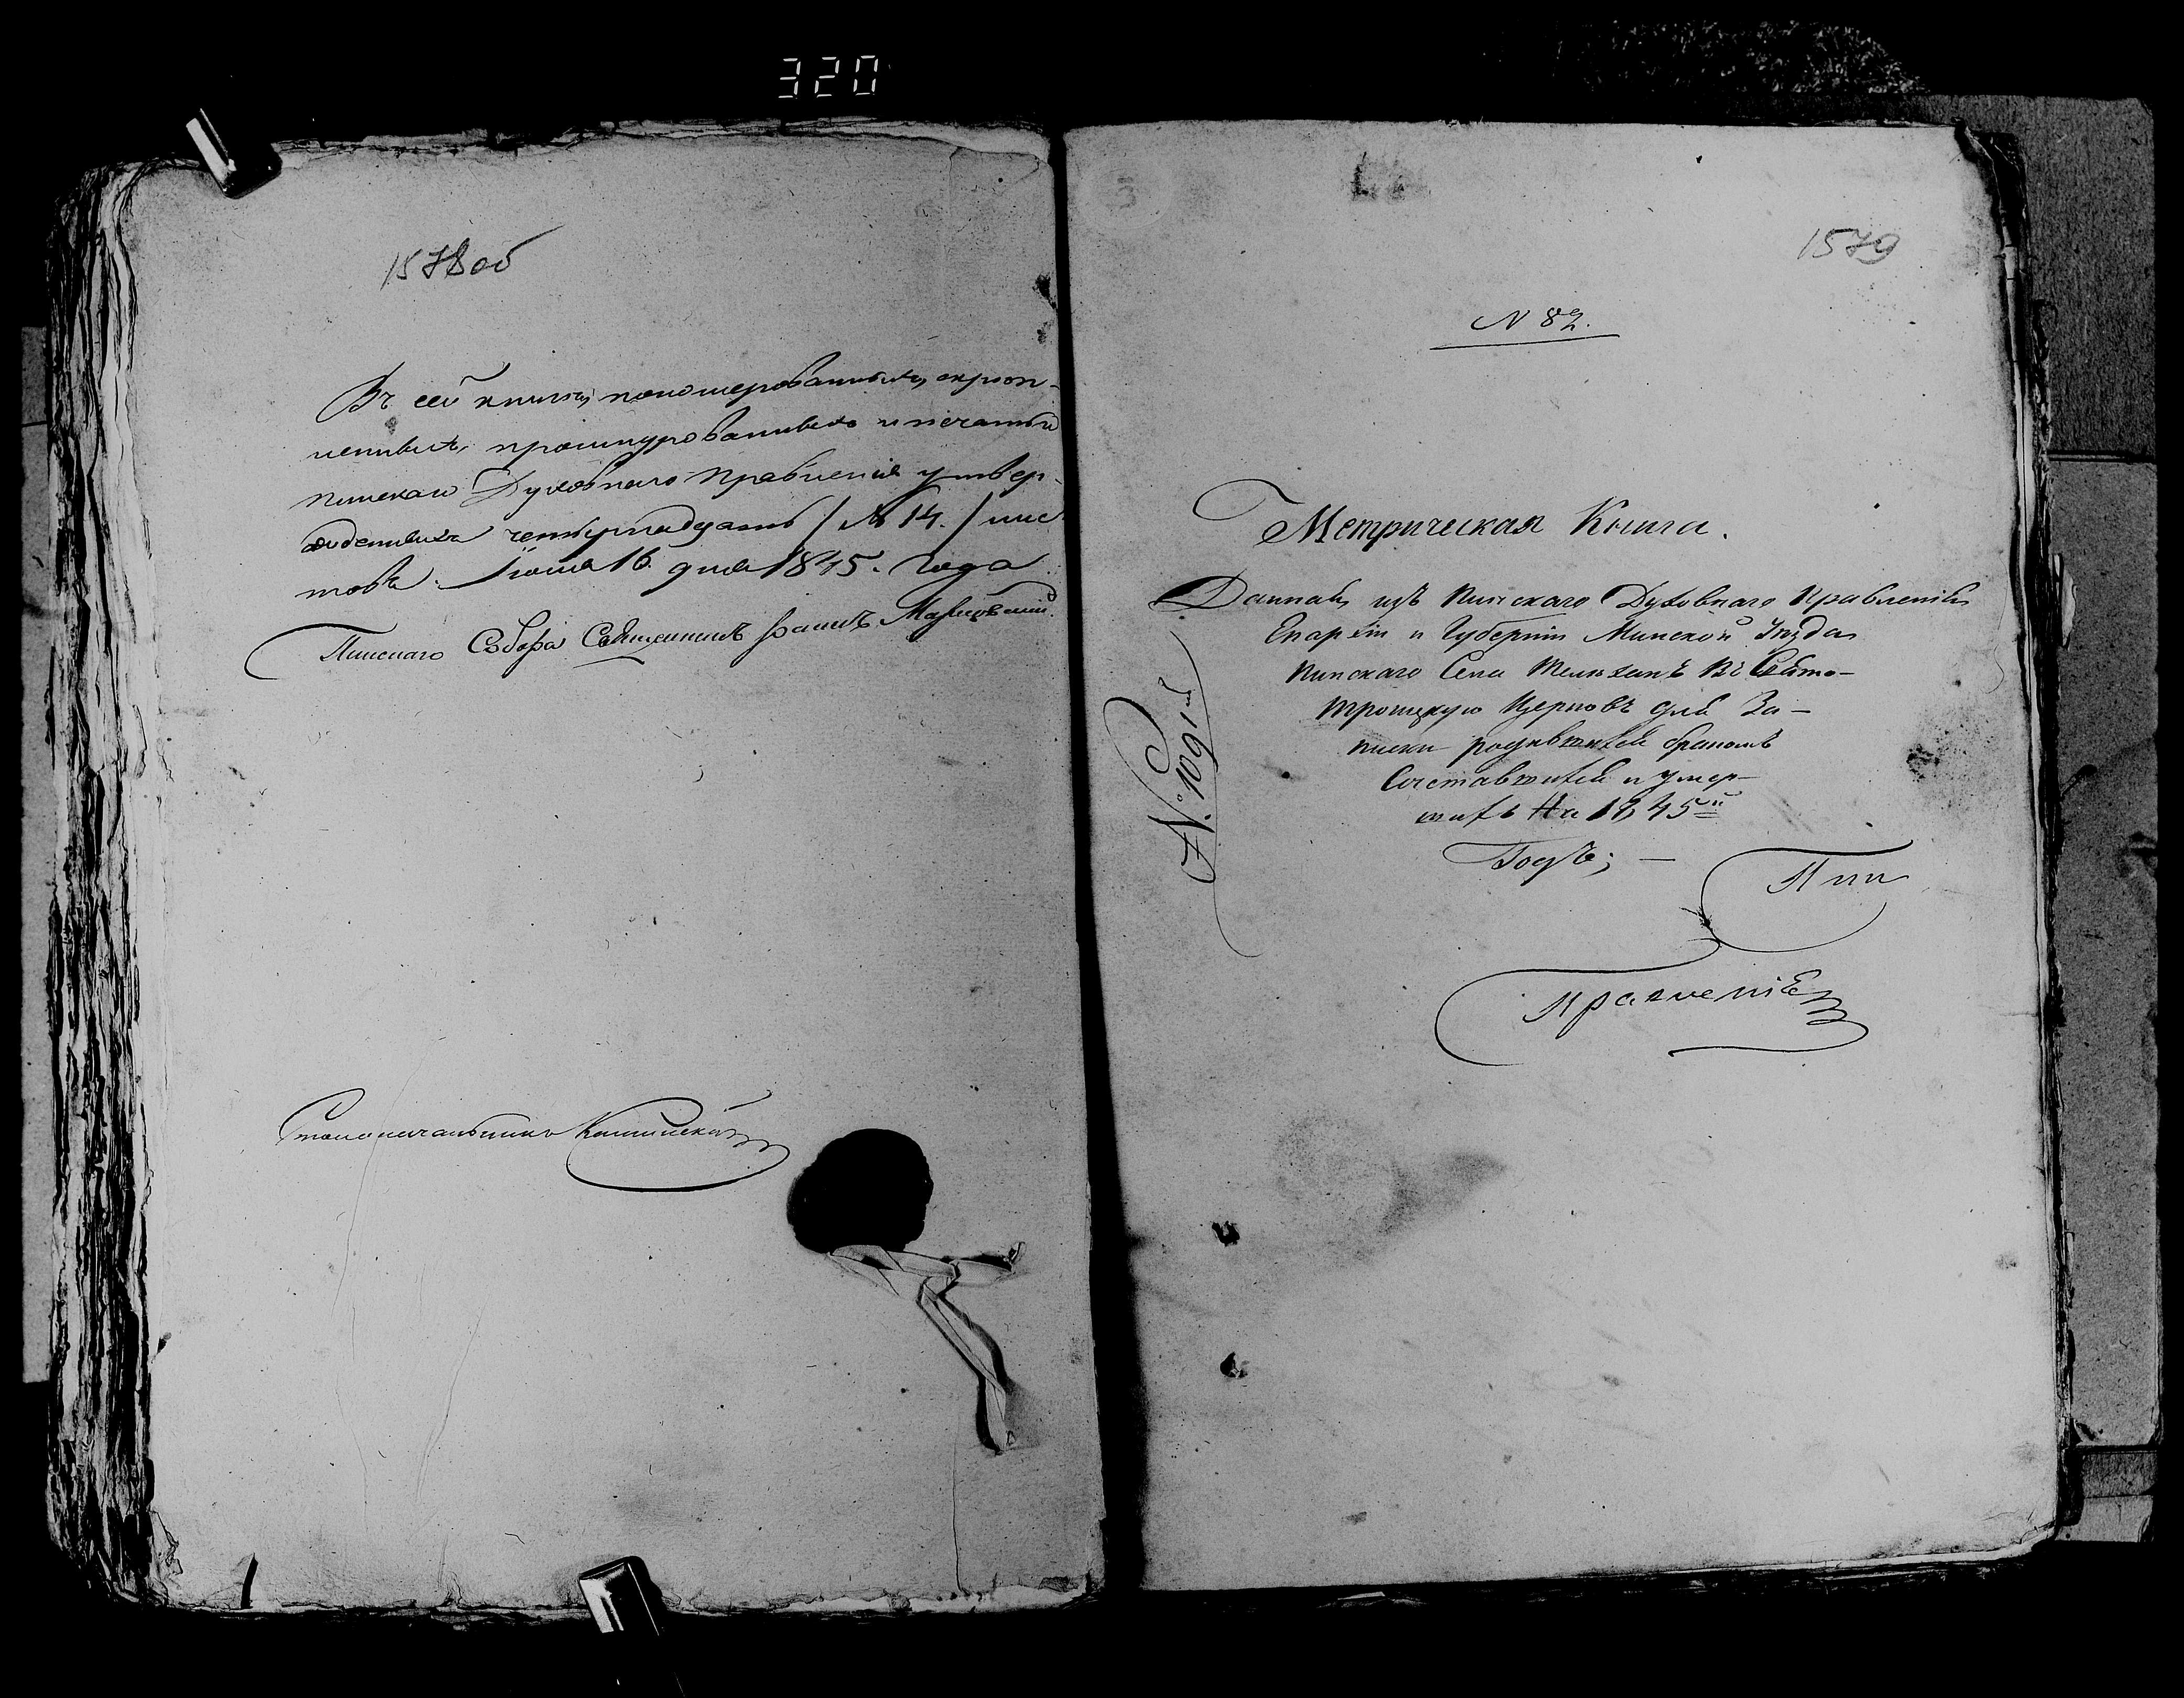 320
1578 об
Въ сей книгѣ пономерованныхъ, скрѣп-
ленныхъ, прошнурованныхъ и печатью
Пинскаго Духовнаго Правленія утвер-
жденныхъ четырнадцать / № 14. / лис-
товъ. Іюня 16. дня 1845. года
Пинскаго Собора Священникъ Іоаннъ
Столоначальникъ
3
1579
N 82.
Метрическая Книга.
Данная изъ Пинскаго Духовнаго Правленія
Епархіи и Губерніи Минской Уѣзда
Пинскаго Села Телеханъ Въ Свято-
Троицкую Церковь для За-
писки родившихся бракомъ
Сочетавшихся и умер-
шихъ На 1845й
Годъ; —
Пин
Правленіе
№ 1091й